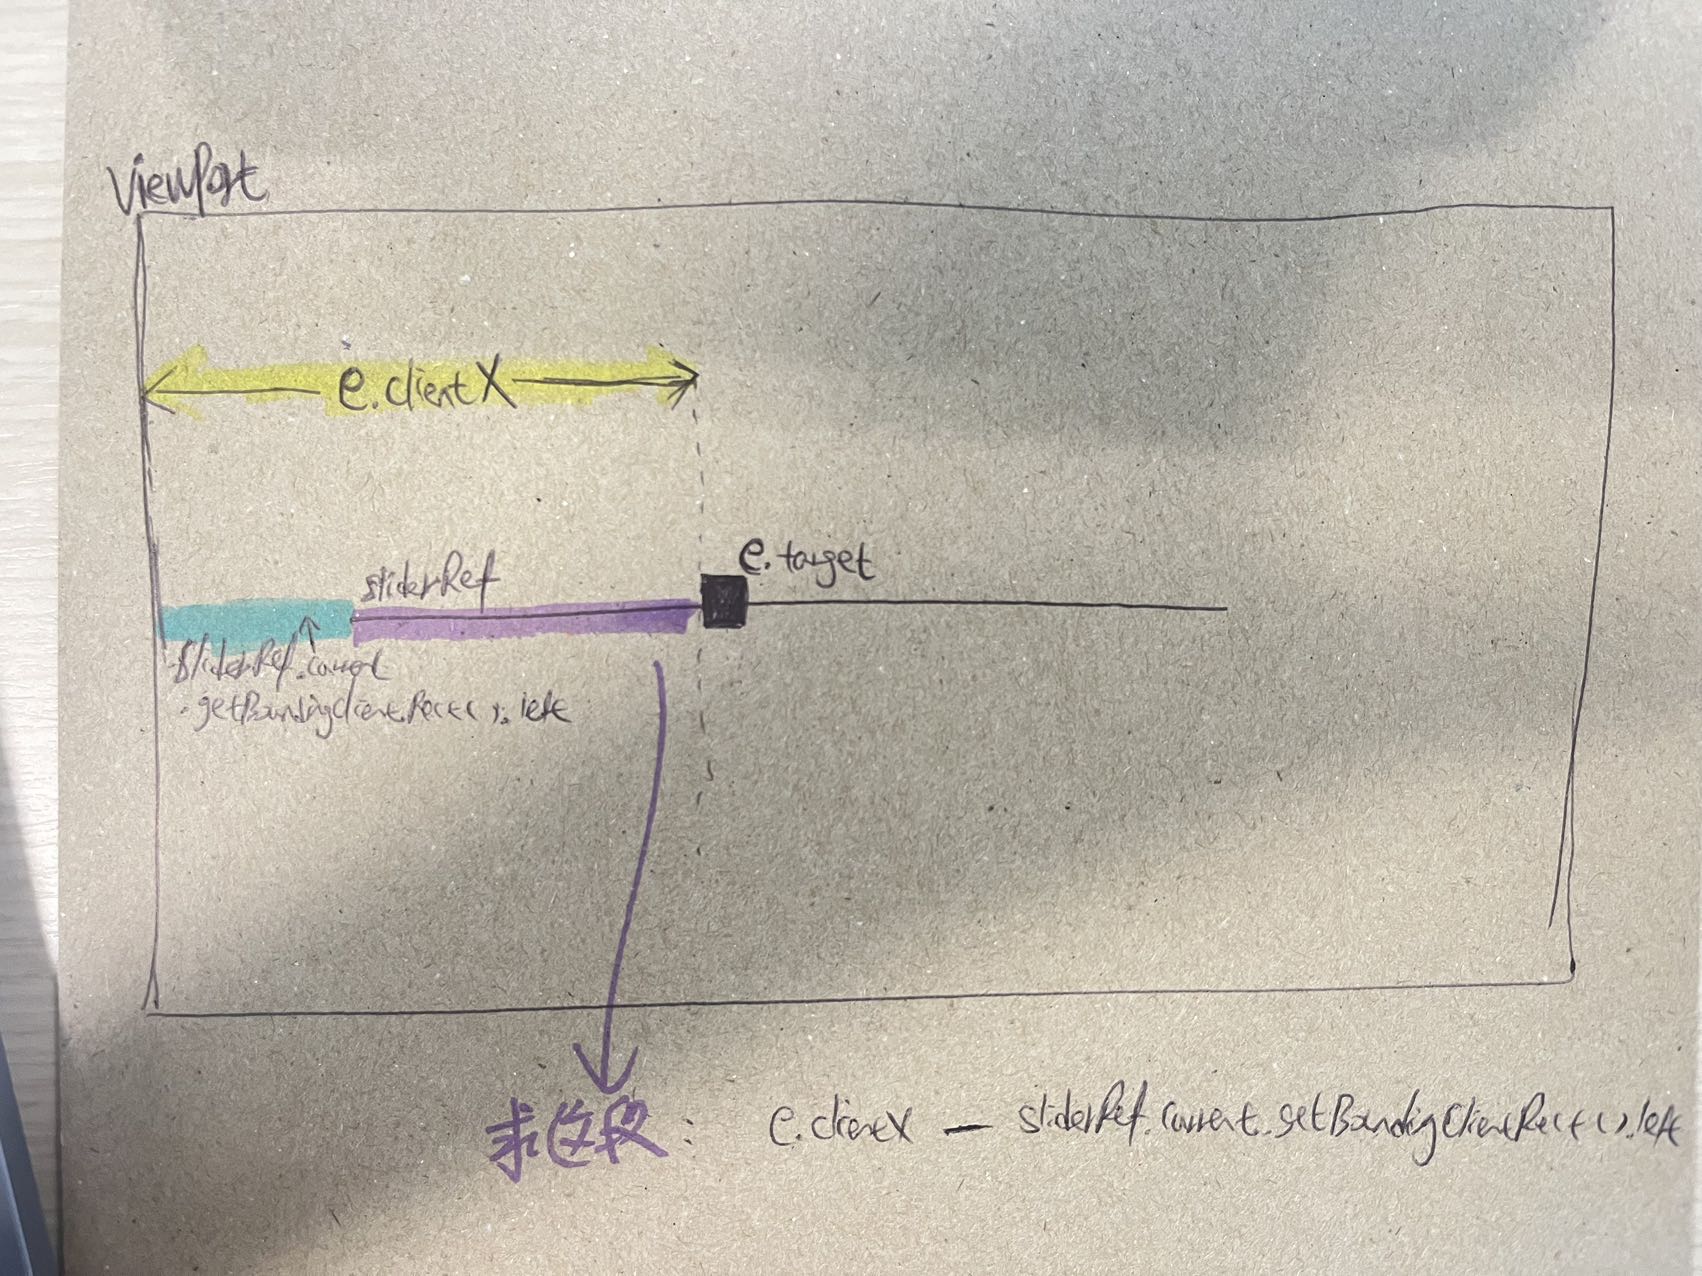 Viewport
e.clientX
e.target
sliderRef
sliderRef.current
.getBoundingClientRect().left
求这段: e.clientX — sliderRef.current.getBoundingClientRect().left